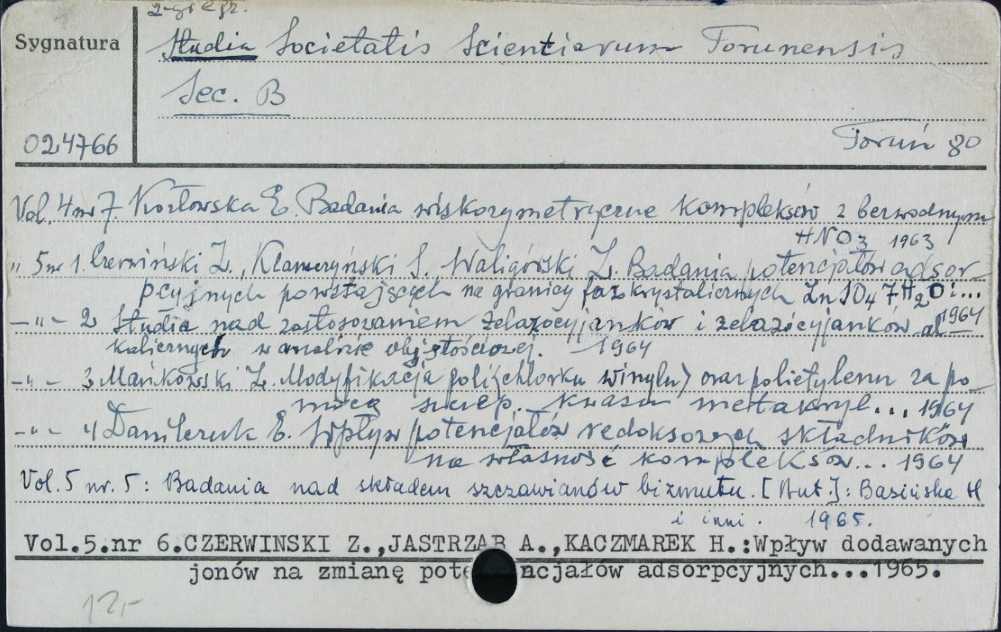 2-gi egz.
Sygnatura
Studia Societatis Scientiarum Torunensis
Sec. B
024766
Toruń 80
Vol. 4 nr 7. Kozłowska E. Badania wiskozymetryczne kompleksów z bezwodnym
HNO3 1963
„ 5 nr 1. Czerwiński Z., Klamczyński S. Waligórski Z. Badania potencjałów adsor-
pcyjnych powstających na granicy faz krystalicznych ZnSO4 7H2O:...
1964
—„— 2 Studia nad zastosowaniem żelazocyjanków i żelazicyjanków al-
kalicznych w analizie objętościowej. 1964
—„— 3. Mańkowski Z. Modyfikacja poli(chlorku winylu) oraz polietylenu za po-
mocą szczep. kwasu metakryl... 1964
—„— 4 Danilczuk E. Wpływ potencjałów redoksowych składników
na własność kompleksów... 1964
Vol. 5 nr. 5: Badania nad składem szczawianów bizmutu. [Aut.]: Basińska H
i inni. 1965.
Vol.5.nr 6.CZERWINSKI Z.,JASTRZAB A.,KACZMAREK H.:Wpływ dodawanych
jonów na zmianę potencjałów adsorpcyjnych...1965.
12,-